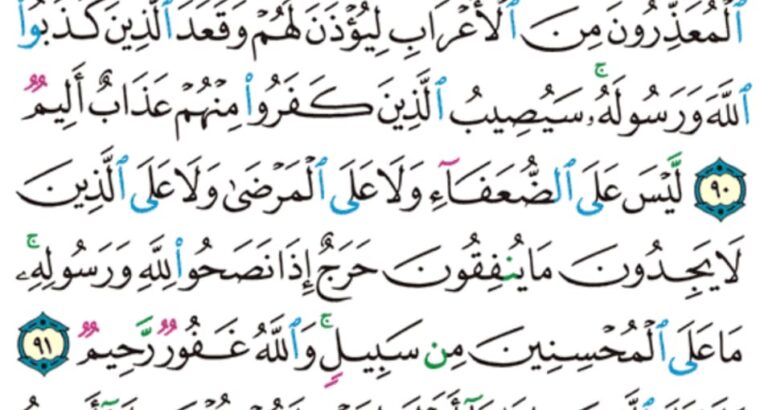 ٱلْمُعَذِّرُونَ مِنَ ٱلْأَعْرَابِ لِيُؤْذَنَ لَهُمْ وَقَعَدَ ٱلَّذِينَ كَذَبُوا۟
ٱللَّهَ وَرَسُولَهُۥ ۚ سَيُصِيبُ ٱلَّذِينَ كَفَرُوا۟ مِنْهُمْ عَذَابٌ أَلِيمٌ
٩٠ لَّيْسَ عَلَى ٱلضُّعَفَآءِ وَلَا عَلَى ٱلْمَرْضَىٰ وَلَا عَلَى ٱلَّذِينَ
لَا يَجِدُونَ مَا يُنفِقُونَ حَرَجٌ إِذَا نَصَحُوا۟ لِلَّهِ وَرَسُولِهِۦ ۚ
مَا عَلَى ٱلْمُحْسِنِينَ مِن سَبِيلٍ ۚ وَٱللَّهُ غَفُورٌ رَّحِيمٌ ٩١